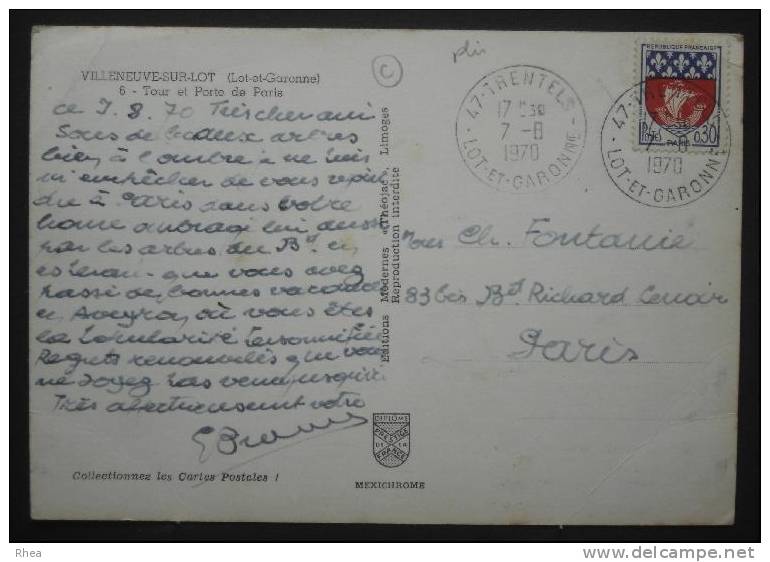 VILLENEUVE-SUR-LOT (Lot-et-Garonne)
6 - Tour et Porte de Paris
ce 7.8.70 Très cher ami
Sous de beaux arbres
bien à l'ombre je ne puis
m'empêcher de vous
à Paris dans votre
home ombragé lui aussi
par les arbres du Bd et
que vous avez
passé de bonnes vacances
en Aveyron, où vous êtes
la popularité personnifiée
Regrets renouvelés que vous
ne soyez pas venu jusqu'ici
Très affectueusement votre
Collectionnez les Cartes Postales !
Editions Modernes « Théojac » Limoges
Reproduction interdite
DIPLOME
PRESTIGE
DE LA
FRANCE
MEXICHROME
plis
C
47-TRENTELS
17H30
7-8
1970
LOT-ET-GARONNE
REPUBLIQUE FRANÇAISE
POSTES
PARIS
0,30
7-8
1970
LOT-ET-GARONNE
Ch. Fontanié
83 bis Bd Richard Lenoir
Paris
Rhea
http://www.delcampe.net